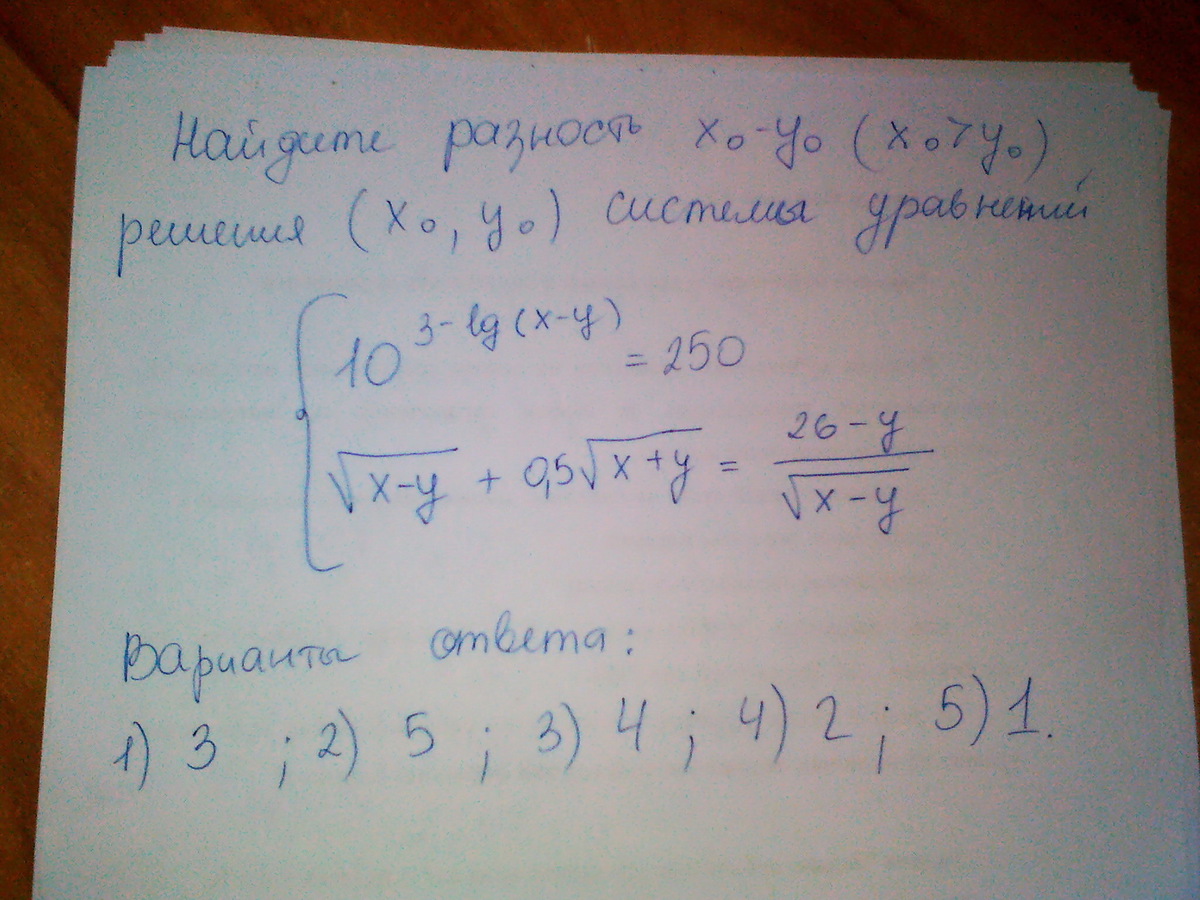 Найдите разность x₀-y₀ (x₀>y₀)
решения (x₀, y₀) системы уравнений
10^(3-lg(x-y)) = 250
√(x-y) + 0,5√(x+y) = (26-y)/√(x-y)
Варианты ответа:
1) 3 ; 2) 5 ; 3) 4 ; 4) 2 ; 5) 1.